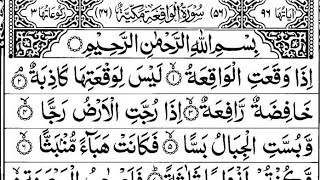 اٰیَاتُهَا ٩٦ (٥٦) سُوْرَةُ الْوَاقِعَةِ مَکِّیَّةٌ (٤٦) رُکُوْعَاتُهَا ٣
بِسْمِ اللّٰهِ الرَّحْمٰنِ الرَّحِیْمِ
اِذَا وَقَعَتِ الْوَاقِعَةُ ۙ﴿١﴾ لَیْسَ لِوَقْعَتِهَا كَاذِبَةٌ ۘ﴿٢﴾
خَافِضَةٌ رَّافِعَةٌ ۙ﴿٣﴾ اِذَا رُجَّتِ الْاَرْضُ رَجًّا ۙ﴿٤﴾
وَّبُسَّتِ الْجِبَالُ بَسًّا ۙ﴿٥﴾ فَكَانَتْ هَبَآءً مُّنْۢبَثًّا ۙ﴿٦﴾
وَّكُنْتُمْ اَزْوَاجًا ثَلٰثَةً